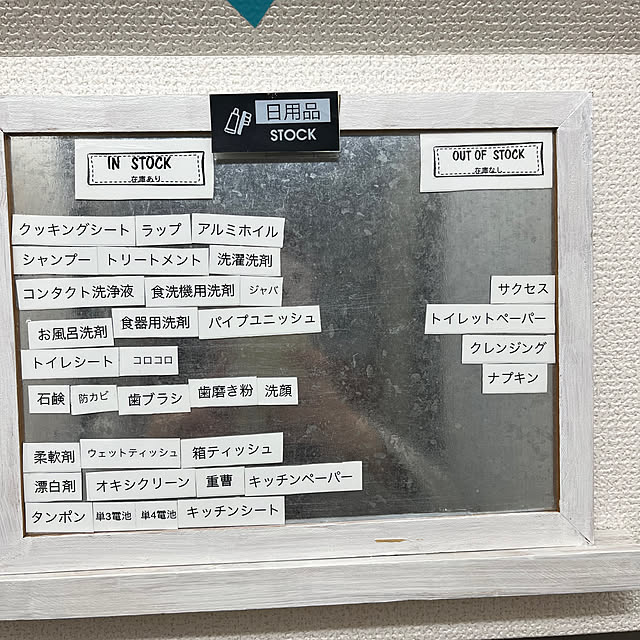 日用品
STOCK
IN STOCK
在庫あり
OUT OF STOCK
在庫なし
クッキングシート ラップ アルミホイル
シャンプー トリートメント 洗濯洗剤
コンタクト洗浄液 食洗機用洗剤 ジャバ
お風呂洗剤 食器用洗剤 パイプユニッシュ
トイレシート コロコロ
石鹸 防カビ 歯ブラシ 歯磨き粉 洗顔
柔軟剤 ウェットティッシュ 箱ティッシュ
漂白剤 オキシクリーン 重曹 キッチンペーパー
タンポン 単3電池 単4電池 キッチンシート
サクセス
トイレットペーパー
クレンジング
ナプキン